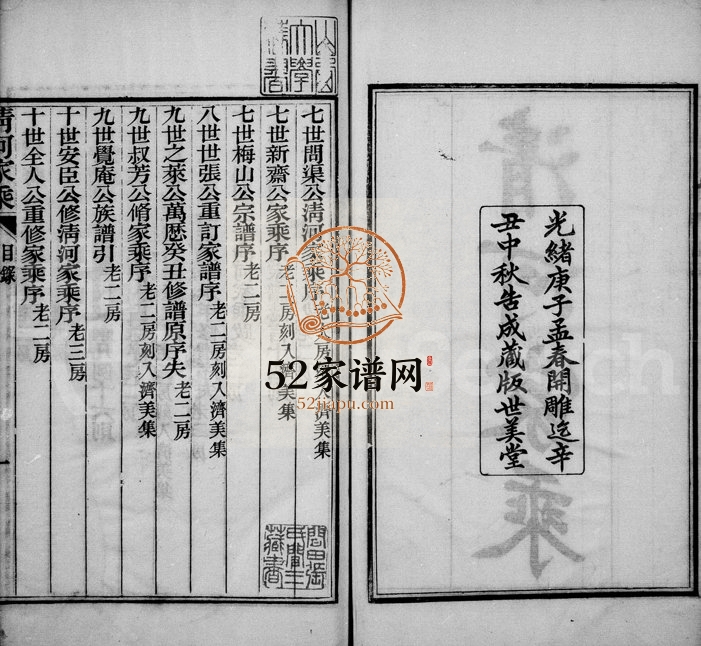 光緒庚子孟春開雕迄辛
丑中秋告成藏版世美堂
七世問渠公清河家乘序
七世新齋公家乘序 老二房刻入濟美集
七世梅山公宗譜序 老二房
八世世張公重訂家譜序 老二房刻入濟美集
九世之萊公萬厯癸丑修譜原序失 老二房
九世叔芳公脩家乘序 老二房刻入濟美集
九世覺庵公族譜引 老二房
十世安臣公修清河家乘序 老三房
十世全人公重修家乘序 老二房
清河家乘 目錄 一
52家谱网
52jiapu.com